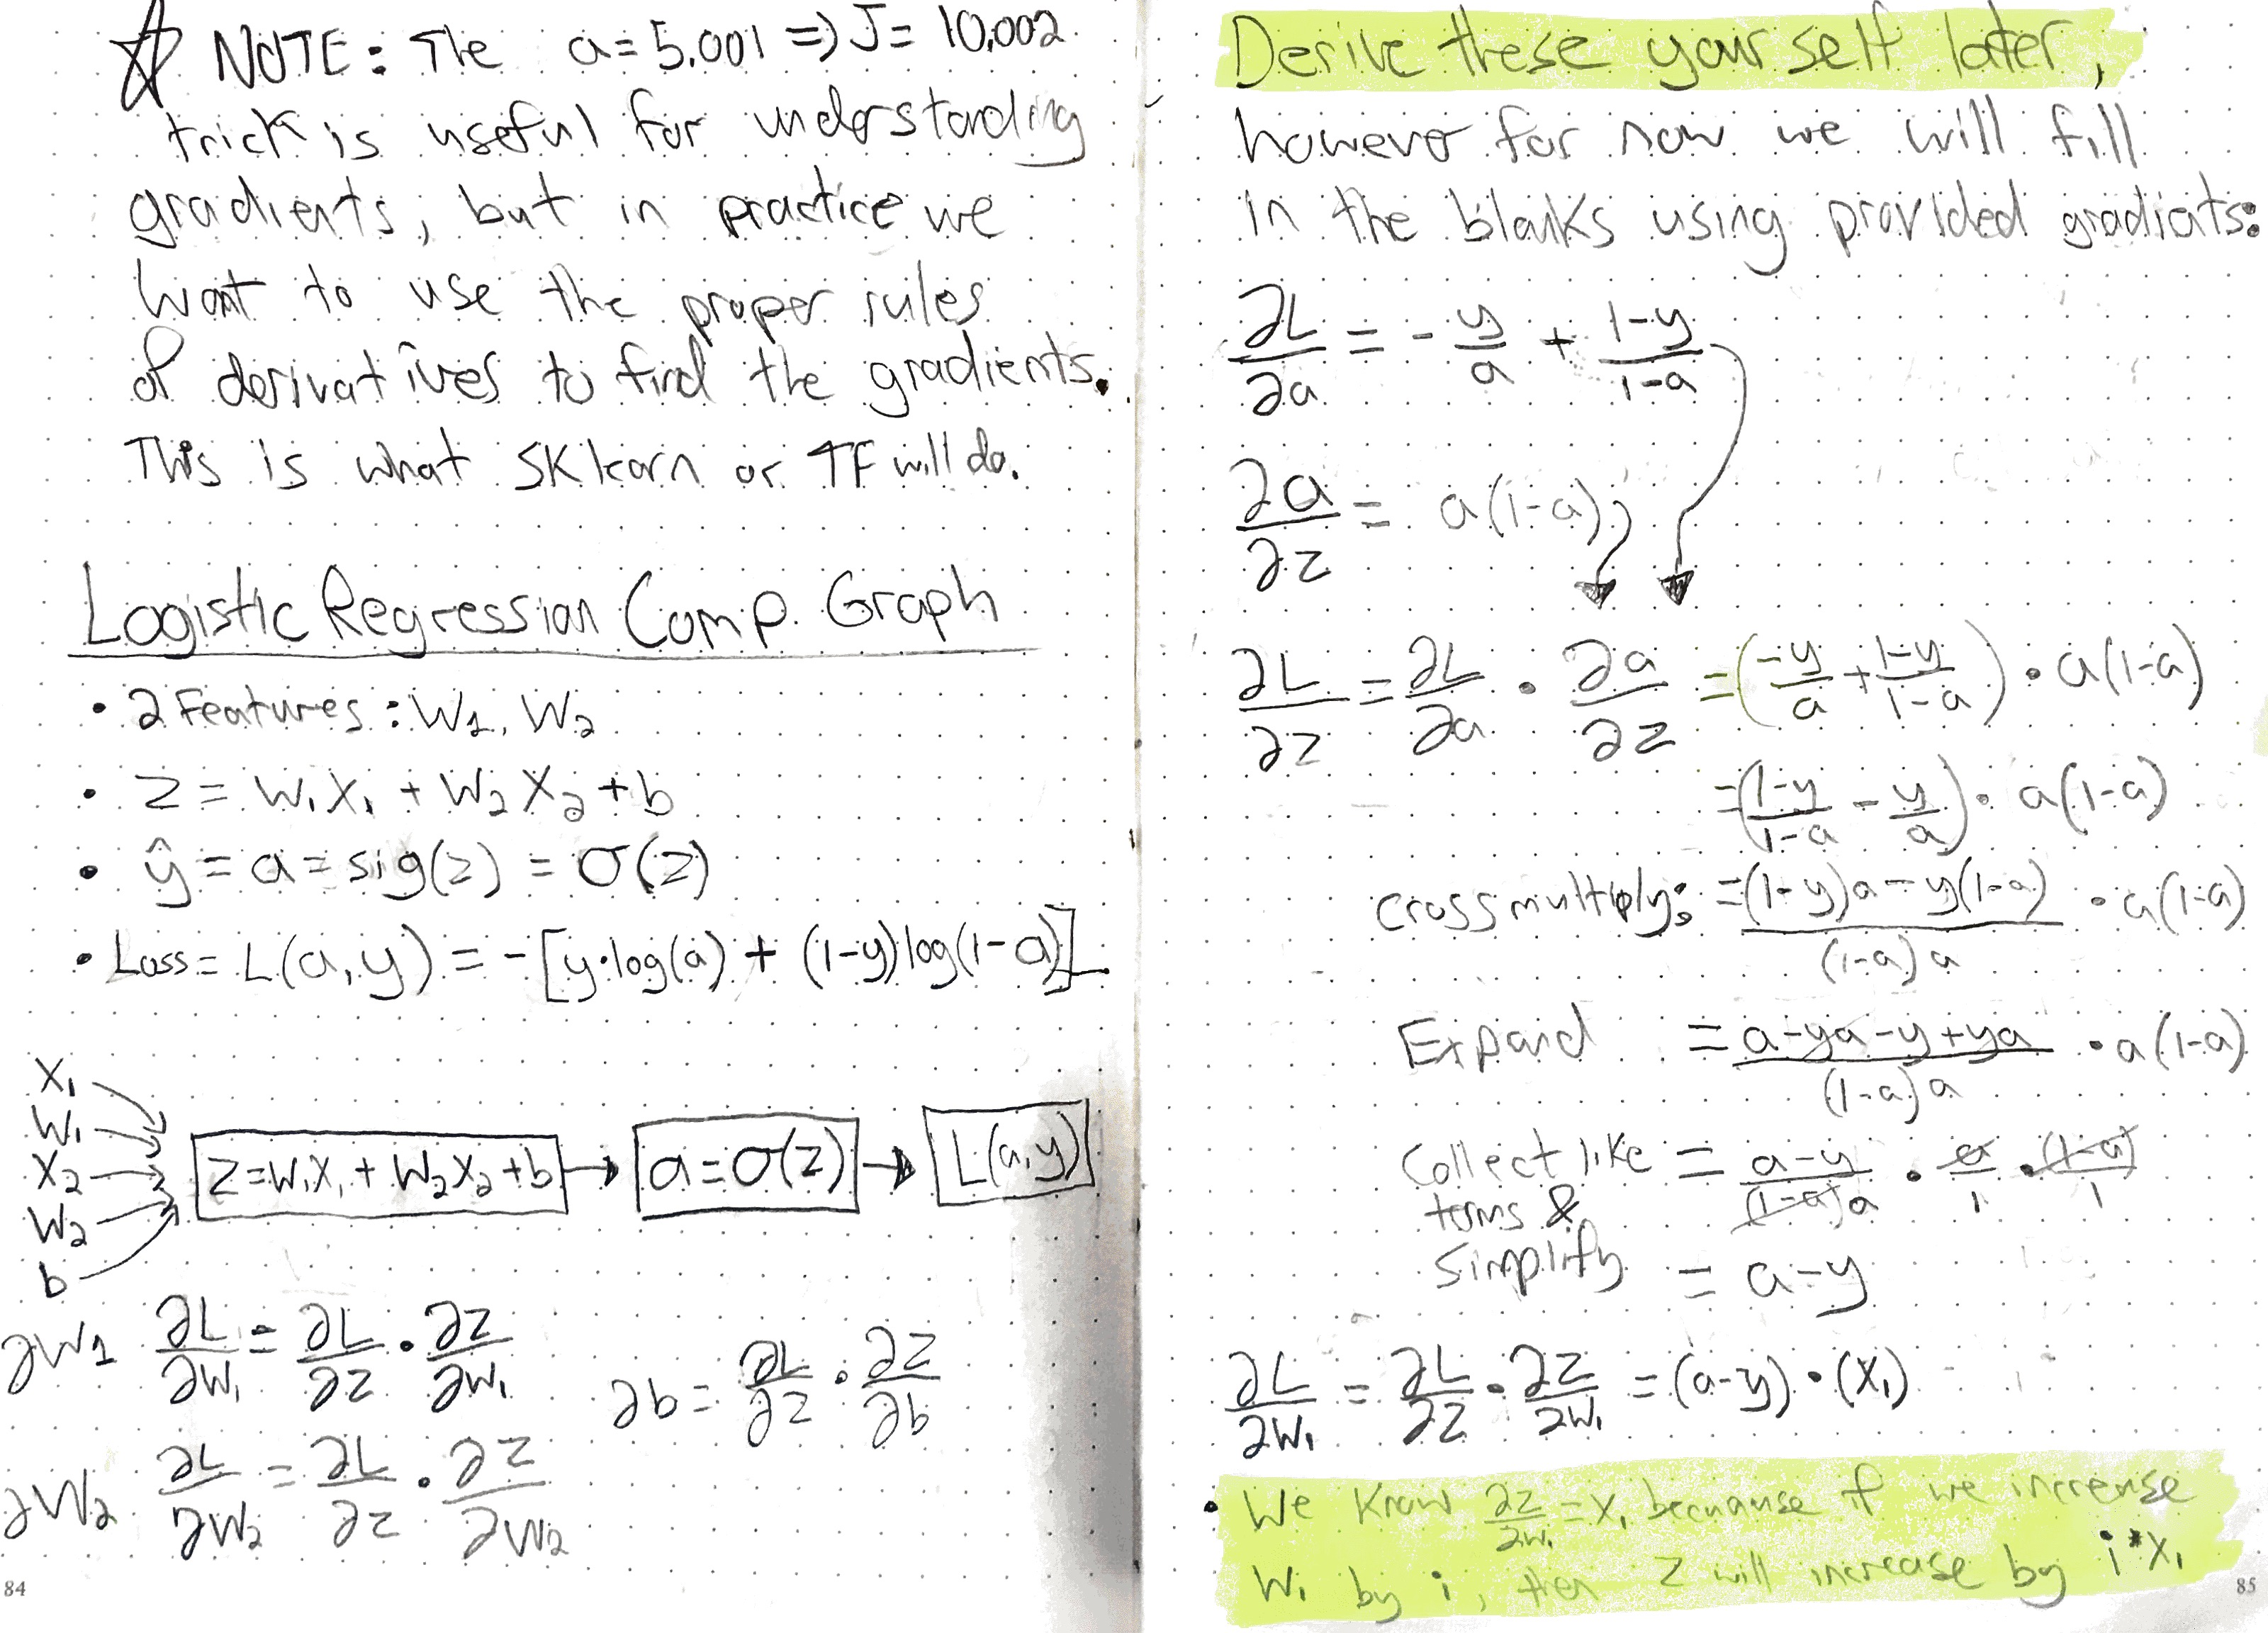 ☆ NOTE: The a=5.001 => J= 10.002
trick is useful for understanding
gradients, but in practice we
want to use the proper rules
of derivatives to find the gradients.
This is what SKlearn or TF will do.
Logistic Regression Comp. Graph
• 2 Features: W1, W2
• Z = W₁X₁ + W₂X₂ + b
• ŷ = a = sig(z) = σ(z)
• Loss = L(a,y) = -[y·log(a) + (1-y)log(1-a)]
X₁
W₁
X₂
W₂
b
Z=W₁X₁ + W₂X₂ + b → a=σ(z) → L(a,y)
∂W1 ∂L/∂W₁ = ∂L/∂z · ∂z/∂W₁
∂b = ∂L/∂z · ∂z/∂b
∂W2 ∂L/∂W₂ = ∂L/∂z · ∂z/∂W₂
84
Derive these yourself later,
however for now we will fill
in the blanks using provided gradients:
∂L/∂a = - y/a + 1-y/1-a
∂a/∂z = a(1-a)
∂L/∂z = ∂L/∂a · ∂a/∂z = (-y/a + 1-y/1-a) · a(1-a)
= (1-y/1-a - y/a) · a(1-a)
cross multiply: = (1-y)a - y(1-a)/(1-a)a · a(1-a)
Expand = a-ya-y+ya/(1-a)a · a(1-a)
Collect like = a-y/(1-a)a · a/1 · (1-a)/1
terms &
Simplify = a-y
∂L/∂W₁ = ∂L/∂z · ∂z/∂W₁ = (a-y) · (X₁)
• We know ∂z/∂W₁ = X₁ becuause if we increase
W₁ by i, then z will increase by i*X₁
85